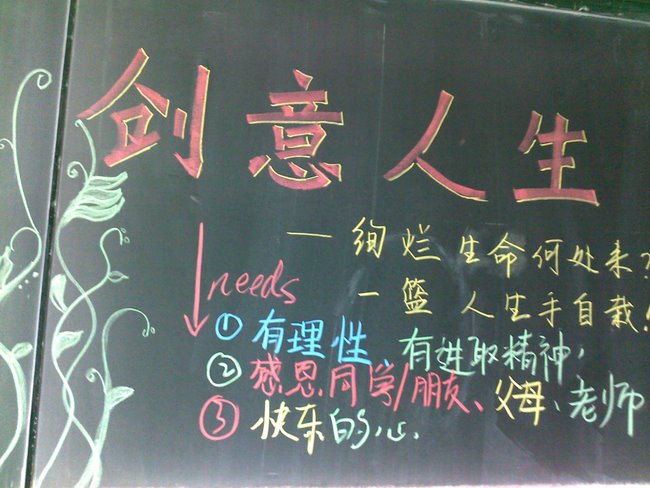 创意人生
—绚烂生命何处来?
一篮人生手自栽!
needs
①有理性、有进取精神,
②感恩同学/朋友、父母、老师
③快乐的心.